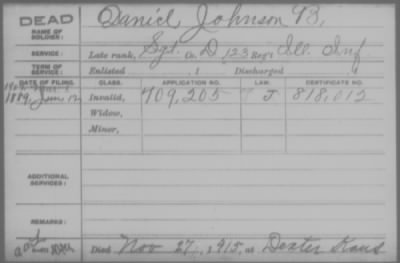 DEAD
NAME OF SOLDIER:
Daniel Johnson B,
SERVICE:
Late rank, Sgt. Co. D 123 Reg't Ill. Inf
TERM OF SERVICE:
Enlisted , 1 Discharged , 1
DATE OF FILING. CLASS. APPLICATION NO. LAW. CERTIFICATE NO.
1889, Jun 12 Invalid, 709,205 J 818,012
Widow,
Minor,
ADDITIONAL SERVICES:
REMARKS:
Died Nov 27, 1915, at Dexter Kans